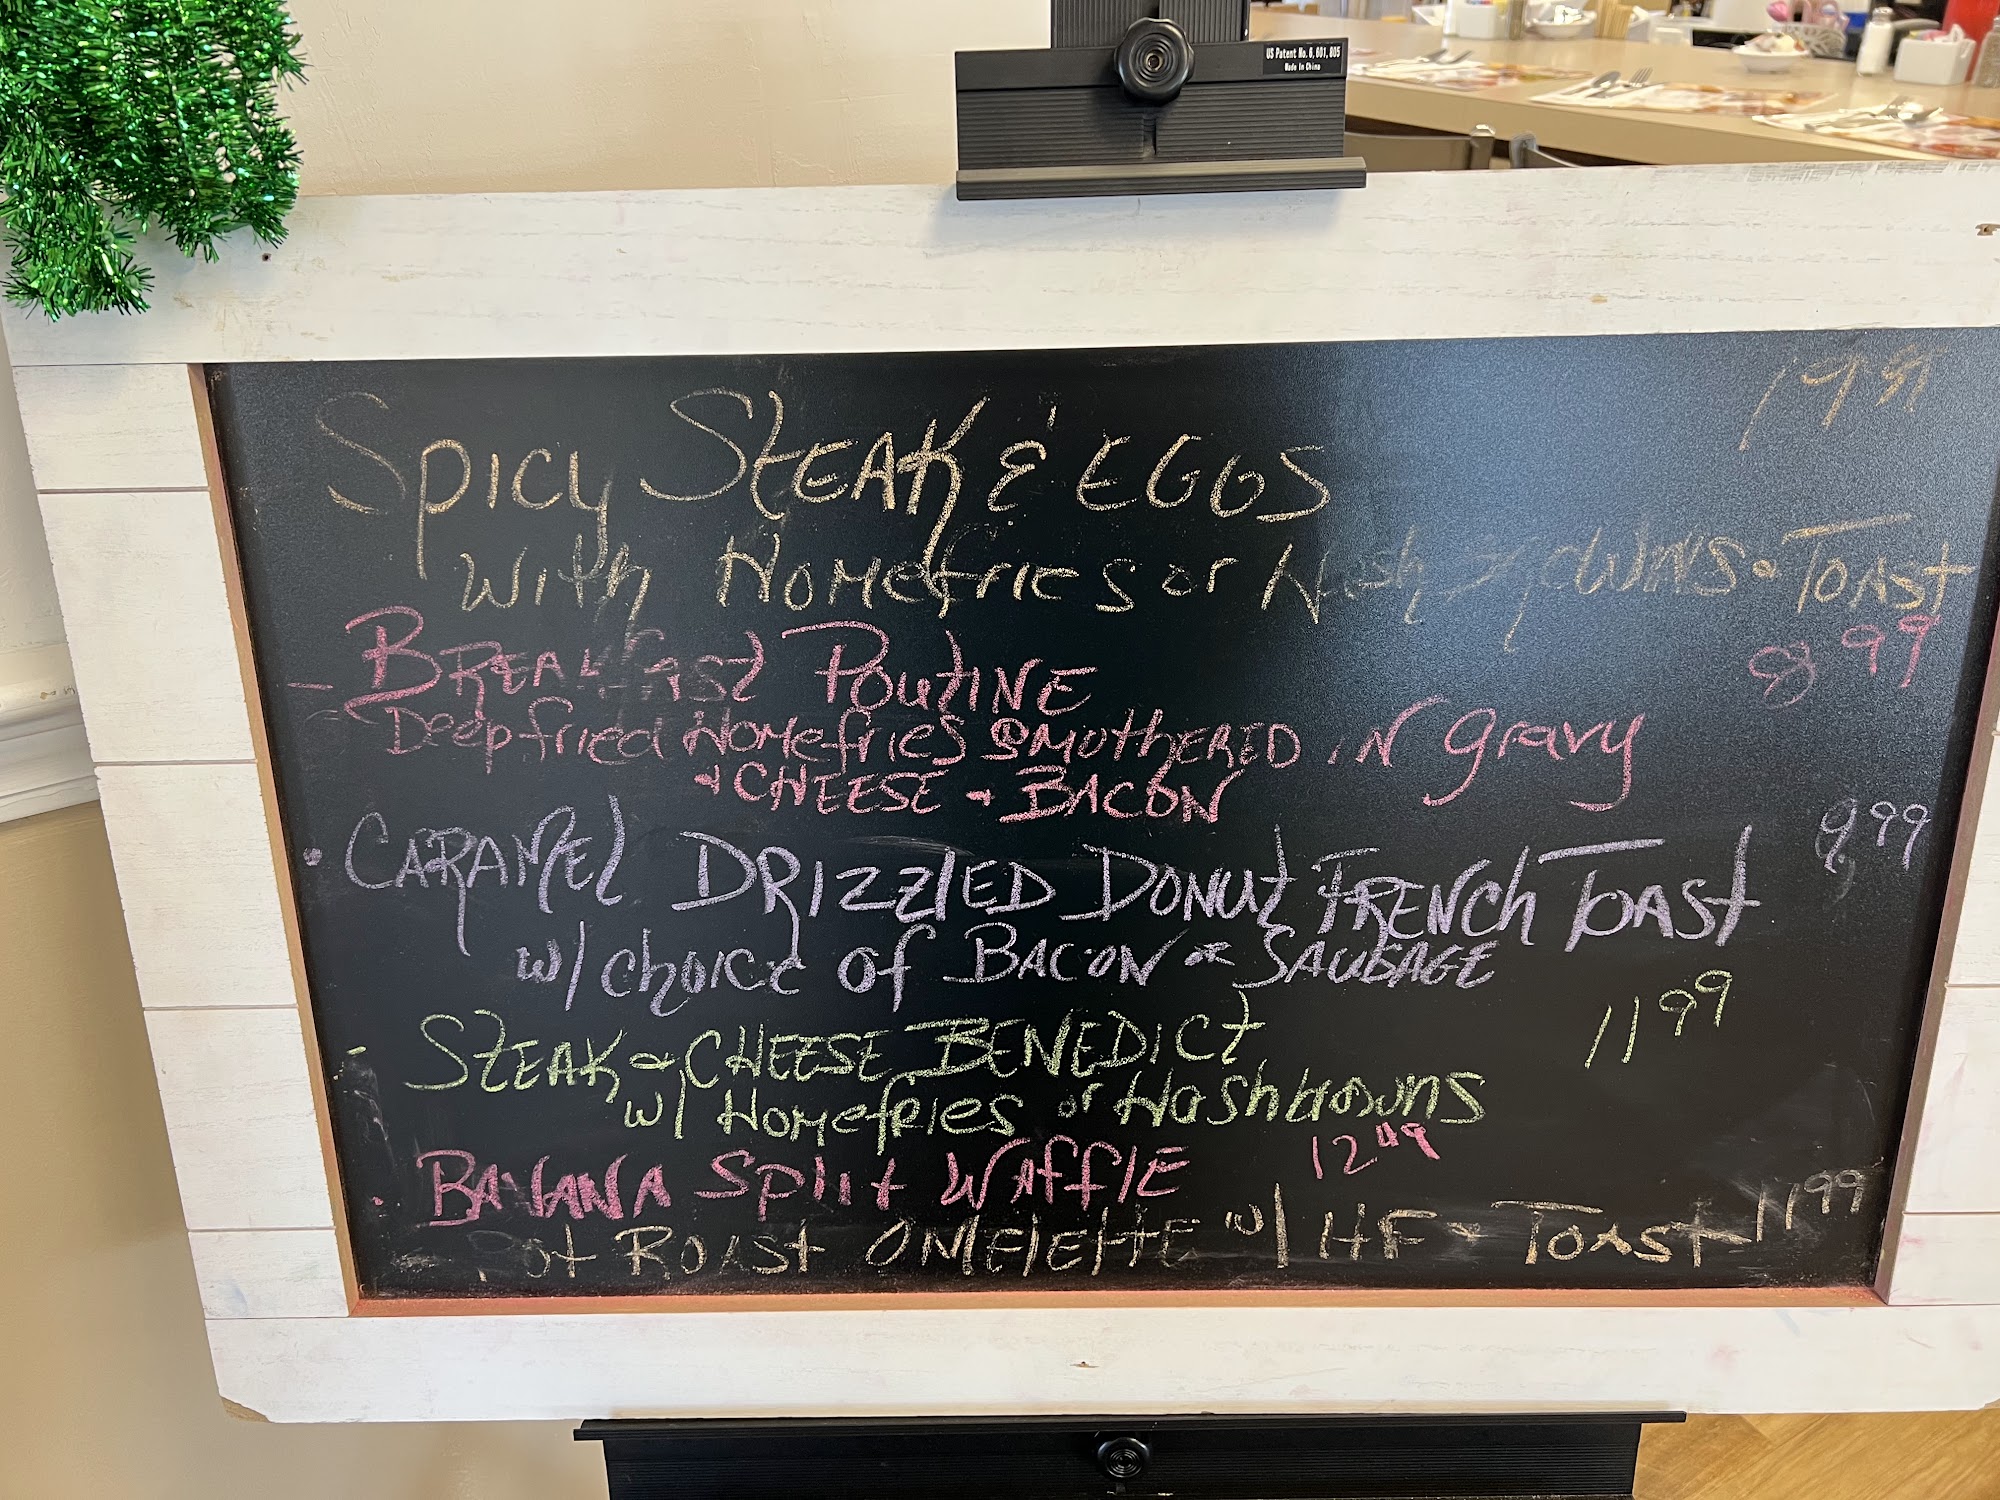 US Patent No. 6,601,805
Made In China
Spicy Steak & Eggs
With Homefries or Hash & Toast
- Breakfast Poutine 8 99
- Deep fried Homefries Smothered in gravy
& Cheese & Bacon
• Caramel Drizzled Donut French Toast 9 99
w/ choice of Bacon or Sausage
- Steak & Cheese Benedict 11 99
w/ Homefries or Hashbrowns
• Banana Split Waffle 12 49
Pot Roast Omelette w/ HF & Toast 11 99